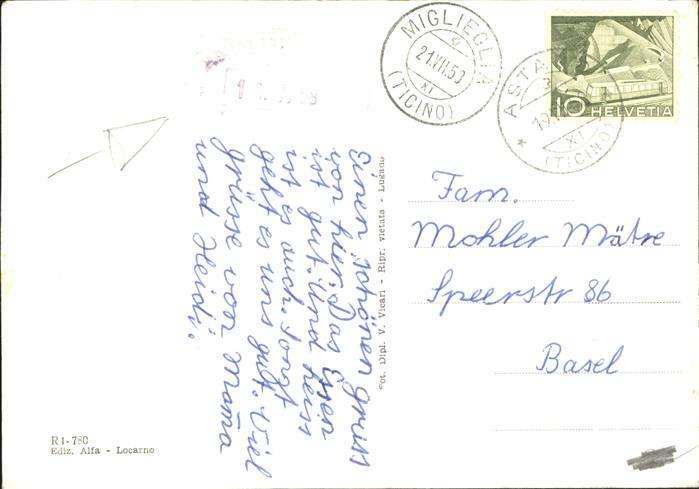 MIGLIEGLIA
21.VII.53
XI
(TICINO)
ASTA
XI
(TICINO)
10 HELVETIA
Einen schönen gruss
von hier. Das Essen
ist gut. Und heiss
ist es auch. Sonst
geht es uns gut. Viel
grüsse von Mama
und Heidi.
Fot. Dipl. V. Vicari - Ripr. vietata - Lugano
Fam.
Mohler Mätre
Speerstr 86
Basel
R1-780
Ediz. Alfa - Locarno